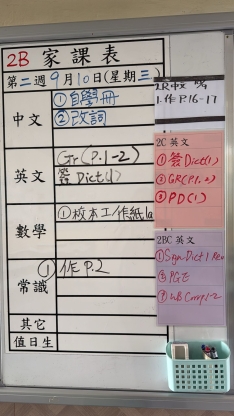 2B 家課表
第二週9月10日(星期三)
中文
①自學冊
②改詞
英文
Gr(P.1-2)
簽Dict(1)
數學
①校本工作紙1a
常識
①作P.2
其它
值日生
1.作P.16-17
2C 英文
①簽Dict(1)
②GR(P.1,2)
③PD(1)
2BC 英文
①Sign Dict 1 Rev
②PGE
③WB Comp 1-2